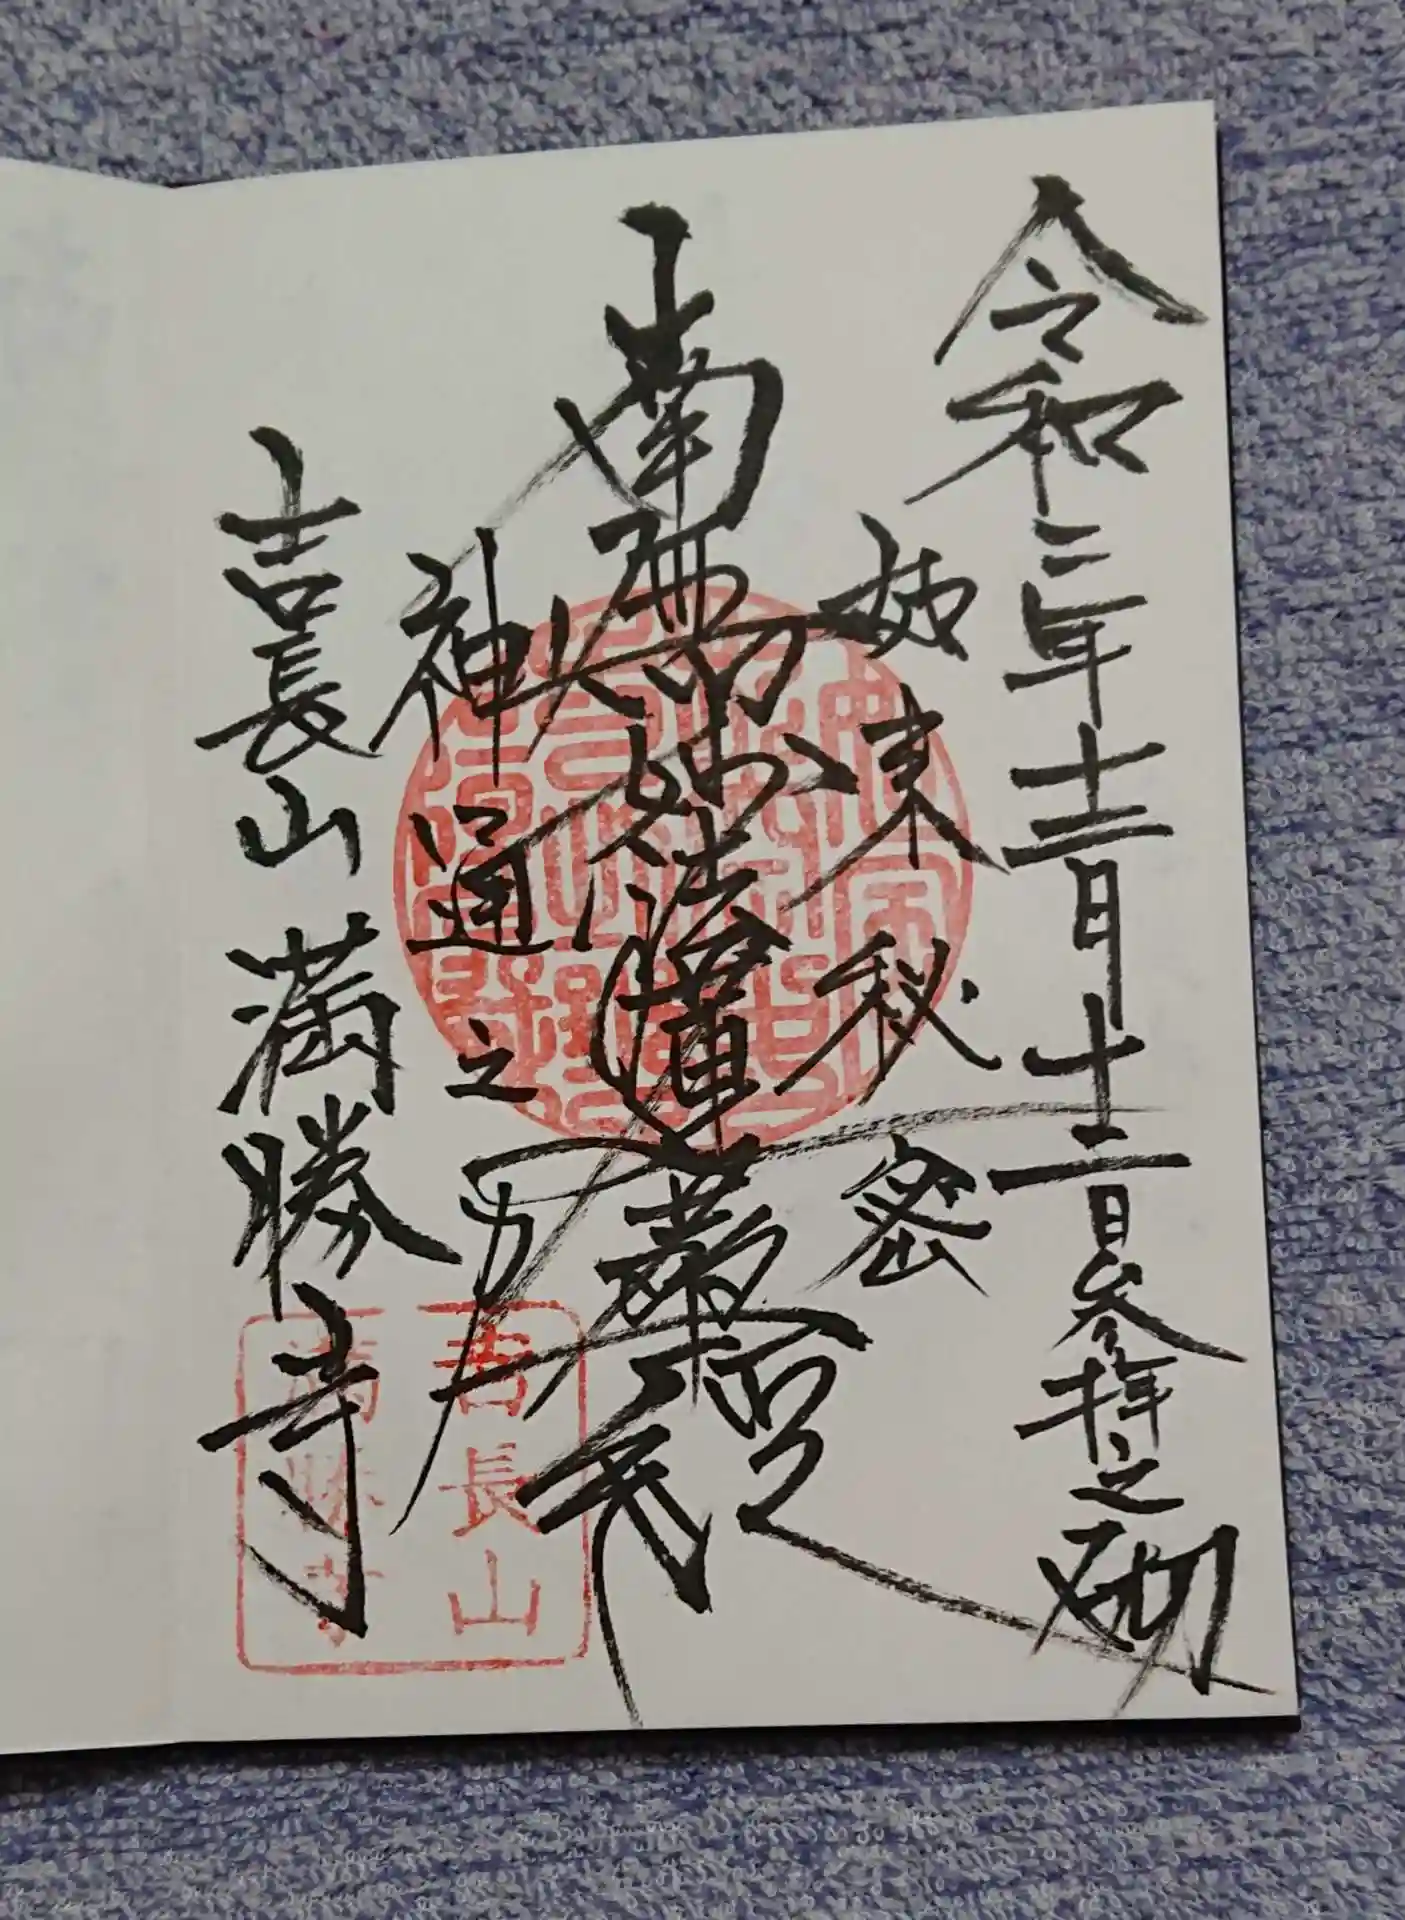 令和三年十二月十二日参拝之砌
如来秘密
南無妙法蓮華経
神通之力
吉長山満勝寺
吉長山
満勝寺